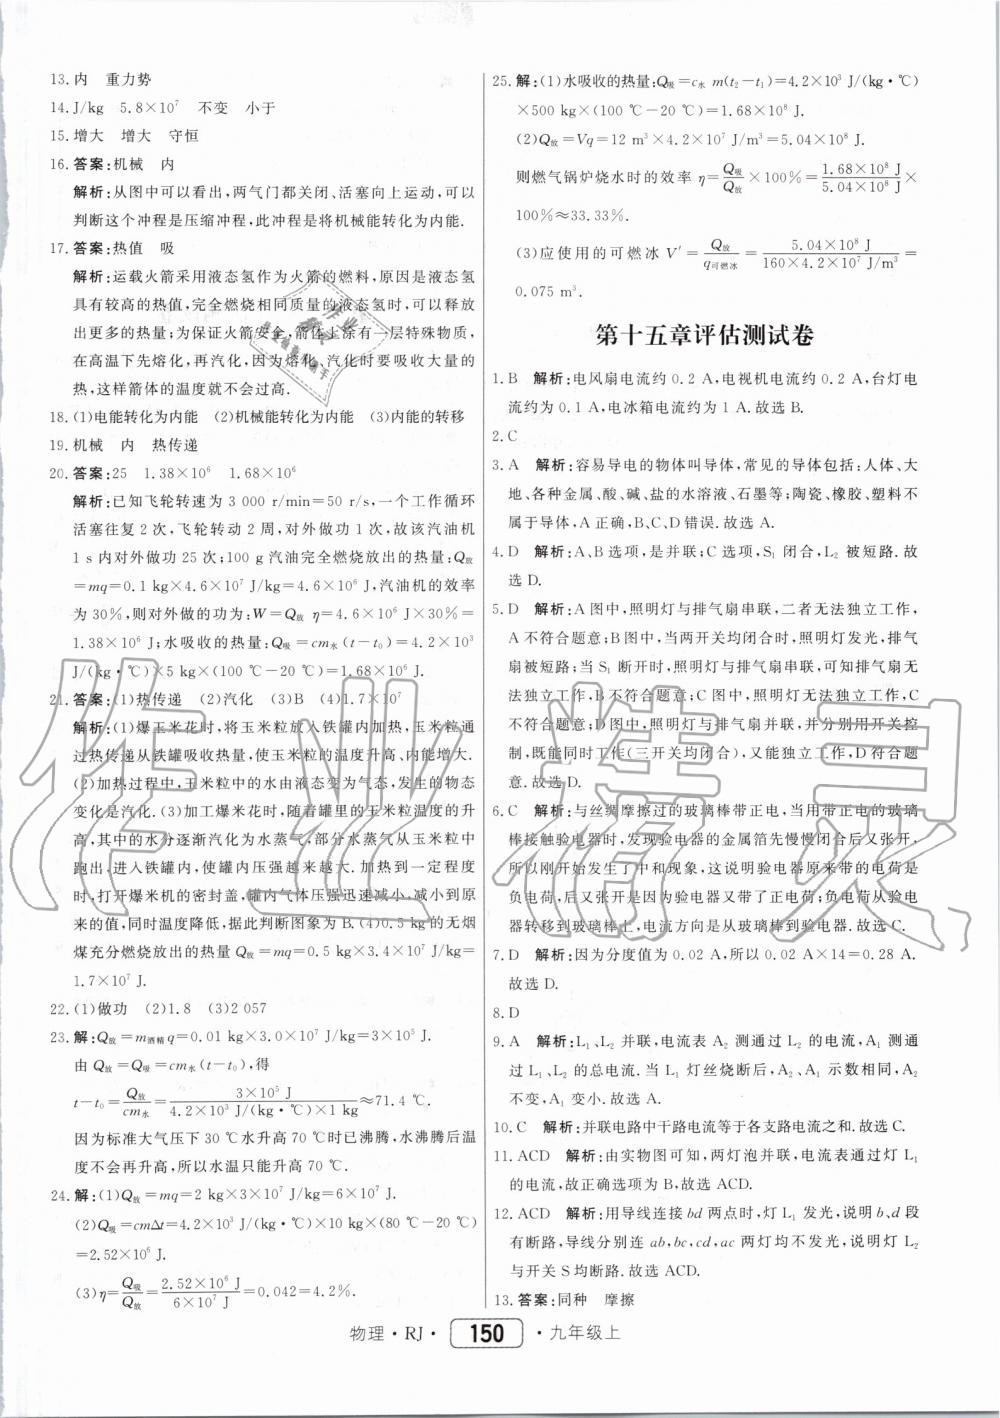 13.内　重力势
14.J/kg　5.8×10⁷　不变　小于
15.增大　增大　守恒
16.答案:机械　内
解析:从图中可以看出,两气门都关闭、活塞向上运动,可以
判断这个冲程是压缩冲程,此冲程是将机械能转化为内能.
17.答案:热值　吸
解析:运载火箭采用液态氢作为火箭的燃料,原因是液态氢
具有较高的热值,完全燃烧相同质量的液态氢时,可以释放
出更多的热量;为保证火箭安全,箭体上涂有一层特殊物质,
在高温下先熔化,再汽化,因为熔化、汽化时要吸收大量的
热,这样箭体的温度就不会过高.
18.(1)电能转化为内能　(2)机械能转化为内能　(3)内能的转移
19.机械　内　热传递
20.答案:25　1.38×10⁶　1.68×10⁶
解析:已知飞轮转速为 3 000 r/min=50 r/s,一个工作循环
活塞往复 2 次,飞轮转动 2 周,对外做功 1 次,故该汽油机
1 s 内对外做功 25 次;100 g 汽油完全燃烧放出的热量:Q放
=mq=0.1 kg×4.6×10⁷ J/kg=4.6×10⁶ J,汽油机的效率
为 30%,则对外做的功为:W=Q放 η=4.6×10⁶ J×30%=
1.38×10⁶ J;水吸收的热量:Q吸=cm水(t-t₀)=4.2×10³
J/(kg·℃)×5 kg×(100 ℃-20 ℃)=1.68×10⁶ J.
21.答案:(1)热传递　(2)汽化　(3)B　(4)1.7×10⁷
解析:(1)爆玉米花时,将玉米粒放入铁罐内加热,玉米粒通
过热传递从铁罐吸收热量,使玉米粒的温度升高、内能增大.
(2)加热过程中,玉米粒中的水由液态变为气态,发生的物态
变化是汽化.(3)加工爆米花时,随着罐里的玉米粒温度的升
高,其中的水分逐渐汽化为水蒸气,部分水蒸气从玉米粒中
跑出,进入铁罐内,使罐内压强越来越大.加热到一定程度
时,打开爆米机的密封盖,罐内气体压强迅速减小,减小到原
来的值,同时温度降低,据此判断图象为 B.(4)0.5 kg的无烟
煤充分燃烧放出的热量 Q放=mq=0.5 kg×3.4×10⁷ J/kg=
1.7×10⁷ J.
22.(1)做功　(2)1.8　(3)2 057
23.解:Q放=m酒精q=0.01 kg×3.0×10⁷ J/kg=3×10⁵ J.
由 Q放=Q吸=cm水(t-t₀),得
t-t₀=Q放/cm水=3×10⁵ J/4.2×10³ J/(kg·℃)×1 kg≈71.4 ℃.
因为标准大气压下 30 ℃水升高 70 ℃时已沸腾,水沸腾后温
度不会再升高,所以水温只能升高 70 ℃.
24.解:(1)Q放=mq=2 kg×3×10⁷ J/kg=6×10⁷ J.
(2)Q吸=cmΔt=4.2×10³ J/(kg·℃)×10 kg×(80 ℃-20 ℃)
=2.52×10⁶ J.
(3)η=Q吸/Q放=2.52×10⁶ J/6×10⁷ J=0.042=4.2%.
25.解:(1)水吸收的热量:Q吸=c水 m(t₂-t₁)=4.2×10³ J/(kg·℃)
×500 kg×(100 ℃-20 ℃)=1.68×10⁸ J.
(2)Q放=Vq=12 m³×4.2×10⁷ J/m³=5.04×10⁸ J.
则燃气锅炉烧水时的效率 η=Q吸/Q放×100%=1.68×10⁸ J/5.04×10⁸ J×
100%≈33.33%.
(3)应使用的可燃冰 V′=Q放/q可燃冰=5.04×10⁸ J/160×4.2×10⁷ J/m³=
0.075 m³.
第十五章评估测试卷
1.B　解析:电风扇电流约 0.2 A,电视机电流约 0.2 A,台灯电
流约为 0.1 A,电冰箱电流约为 1 A.故选 B.
2.C
3.A　解析:容易导电的物体叫导体,常见的导体包括:人体、大
地、各种金属、酸、碱、盐的水溶液、石墨等;陶瓷、橡胶、塑料不
属于导体,A 正确,B、C、D 错误.故选 A.
4.D　解析:A、B 选项,是并联;C 选项,S₁ 闭合,L₂ 被短路.故
选 D.
5.D　解析:A 图中,照明灯与排气扇串联,二者无法独立工作,
A 不符合题意;B 图中,当两开关均闭合时,照明灯发光,排气
扇被短路;当 S₁ 断开时,照明灯与排气扇串联,可知排气扇无
法独立工作,B 不符合题意;C 图中,照明灯无法独立工作,C
不符合题意;D 图中,照明灯与排气扇并联,并分别用开关控
制,既能同时工作(三开关均闭合),又能独立工作,D 符合题
意.故选 D.
6.C　解析:与丝绸摩擦过的玻璃棒带正电,当用带正电的玻璃
棒接触验电器时,发现验电器的金属箔先慢慢闭合后又张开,
所以刚开始发生了中和现象,这说明验电器原来带的电荷是
负电荷,后又张开是因为验电器又带了正电荷;负电荷从验电
器转移到玻璃棒上,电流方向是从玻璃棒到验电器.故选 C.
7.D　解析:因为分度值为 0.02 A,所以 0.02 A×14=0.28 A.
故选 D.
8.D
9.A　解析:L₁、L₂ 并联,电流表 A₂ 测通过 L₂ 的电流,A₁ 测通
过 L₁、L₂ 的总电流.当 L₁ 灯丝烧断后,A₂、A₁ 示数相同,A₂
不变,A₁ 变小.故选 A.
10.C　解析:并联电路中干路电流等于各支路电流之和.故选 C.
11.ACD　解析:由实物图可知,两灯泡并联,电流表通过灯 L₁
的电流,故正确选项为 A、C、D.故选 ACD.
12.ACD　解析:用导线连接 bd 两点时,灯 L₁ 发光,说明 b、d 段
有断路,导线分别连 ab,bc,cd,ac 两灯均不发光,说明灯 L₂
与开关 S均断路.故选 ACD.
13.答案:同种　摩擦
物理·RJ·　150　·九年级上
作业精灵